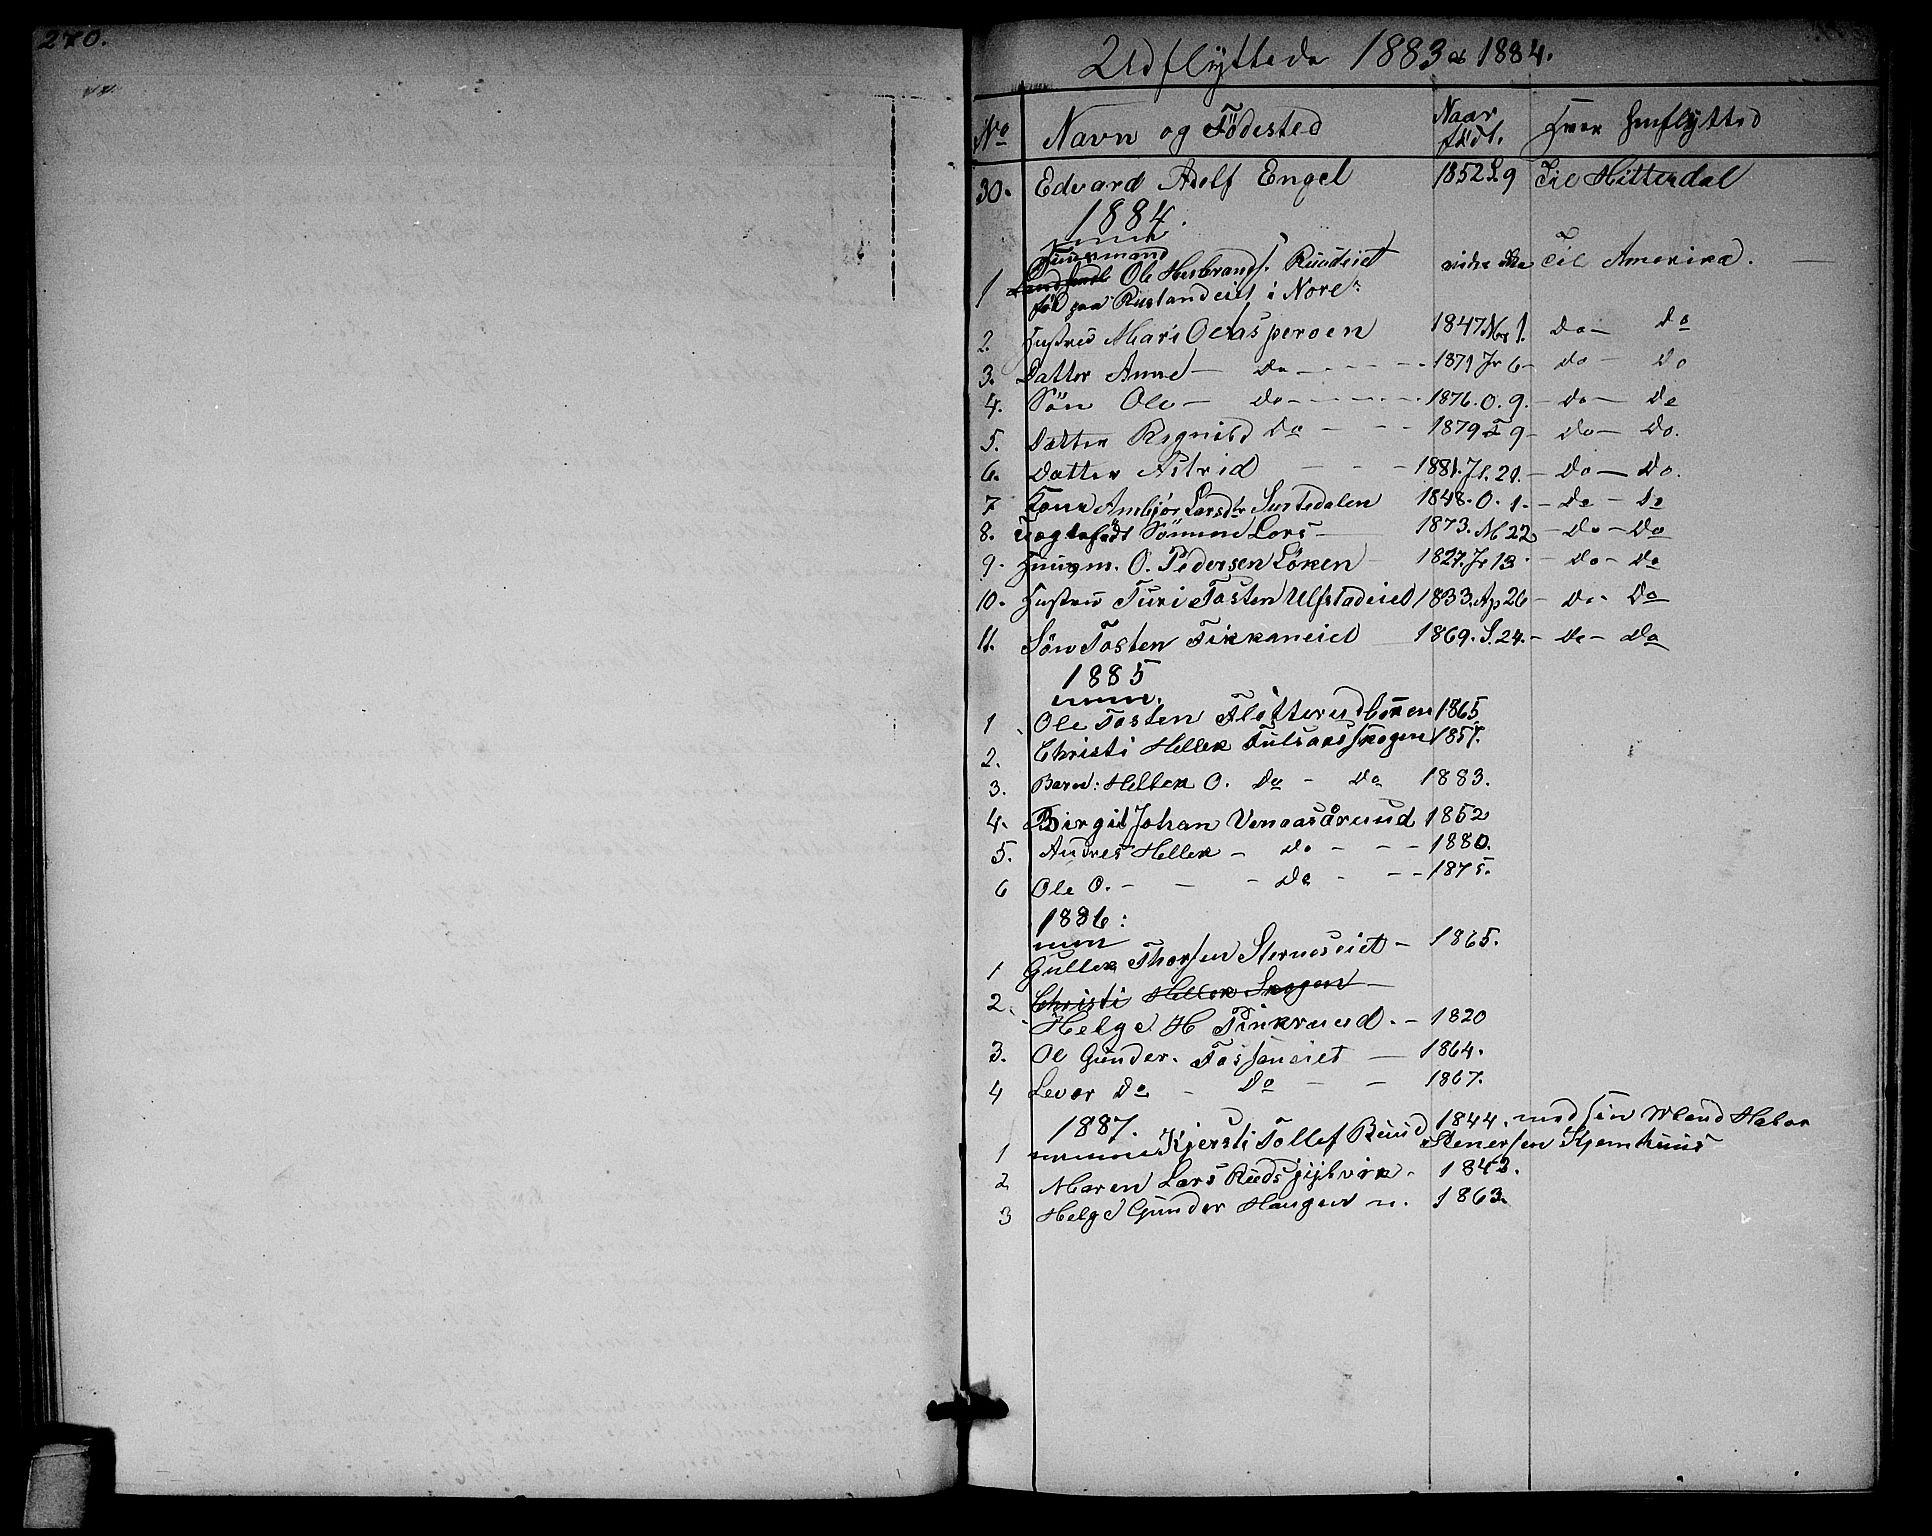 270.
Udflyttede 1883 & 1884.
No Navn og Födested Naar födt. Hvor henflytted
30. Edvard Adolf Engel 1852 S. 9 Til Hitterdal
1884.
Huusmand
1 Ole Herbrands. Ruudeiet Til Amerika.
föd paa Rustandeiet i Nore
2. Hustru Mari Ols 1847 Nov 1. Do Do
3. Datter Anne - Do - 1871 Jr 6 - Do - Do
4. Sön Ole - Do - 1876. O. 9. - Do - Do
5. Datter Ragnild Do - 1879 F 9 - Do - Do.
6. Datter Astrid - 1881. Jl. 21. - Do - Do.
7 Kone Ambjör Larsdtr 1848. O. 1. - Do - Do
8. Uægtefödt Sönnen Lars - 1873. M 22 - Do - Do
9. Huusm. O. Pedersen Löken - 1827. Jr 13 - Do - Do
10. Hustru Turi Tosten Ulfstadeiet 1833. Ap 26 - Do - Do
11. Sön Tosten Fikkaneiet 1869. S. 24. - Do - Do
1885
1 Ole Tosten Flotterudbakken 1865
2. Christi Hellek Fulsaasskogen 1857.
3. Barn: Hellek O. Do - Do 1883.
4. Birgit Johan Venaasåruud 1852
5. Andres Hellek - Do - - - 1880.
6 Ole O. - - - Do - - - 1875.
1886:
1 Gullek Thorsen Sternoseiet - 1865.
2. Christi Hellek Skogen -
Helge H Finkruud. - 1820
3. Ol Gunder. Fossaneiet - 1864.
4 Levor Do - Do - - 1867.
1887.
1 Kjersti Tollef Ruud 1844. med sin Mand Halvor
Stenersen Skjemhuus
2 Maren Lars 1842.
3 Helge Gunder Haugen n. 1863.